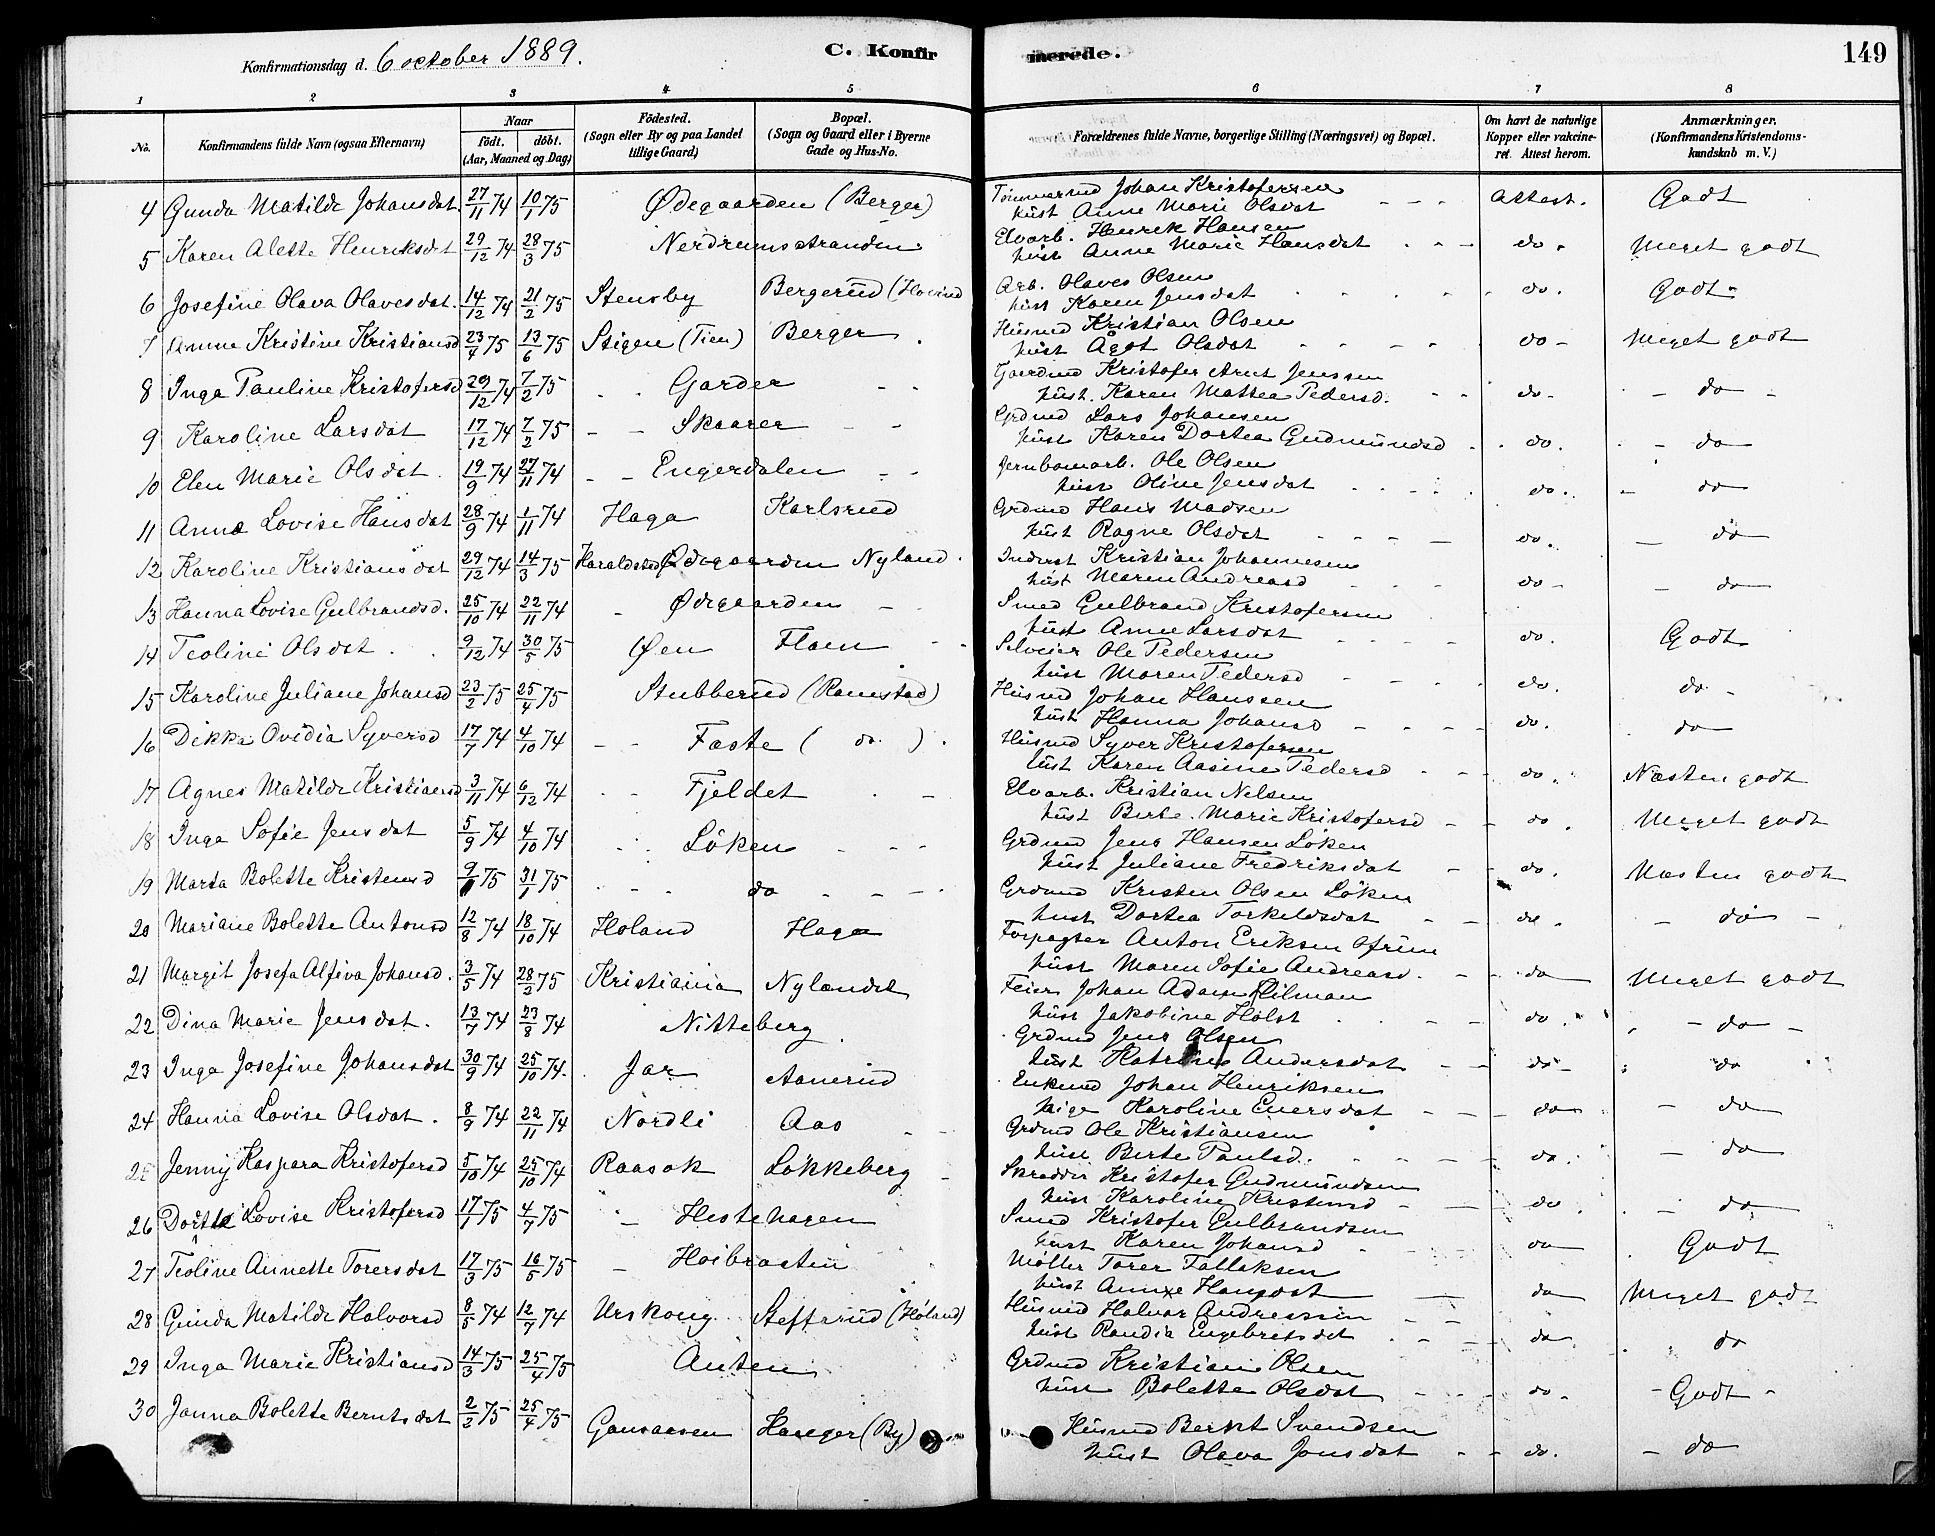 Konfirmationsdag d. 6 october 1889.
C. Konfirmerede.
149
1 2 3 4 5 6 7 8
No.
Konfirmandens fulde Navn (ogsaa Efternavn)
Naar
født. døbt.
(Aar, Maaned og Dag)
Födested.
(Sogn eller By og paa Landet
tillige Gaard)
Bopæl.
(Sogn og Gaard eller i Byerne
Gade og Hus-No.
Forældrenes fulde Navne, borgerlige Stilling (Næringsvei) og Bopæl.
Om havt de naturlige
Kopper eller vakcine-
ret. Attest herom.
Anmærkninger.
(Konfirmandens Kristendoms-
kundskab m. V.)
4 Gunda Matilde Johansdat. 27/11 74 10/1 75 Ødegaarden (Berger) Tømmermd Johan Kristofersen
hust Anne Marie Olsdat - - - Attest. Godt
5 Karen Alette Henriksdat 29/12 74 28/3 75 Nerdrumsstranden. Elvarb. Henrik Hansen
hust Anne Marie Hansdat - - - do. Meget godt
6 Josefine Olava Olavesdat. 14/12 74 21/2 75 Stensby Bergerud (Hovind Arb. Olaves Olsen
hust Karen Jensdat do. Godt
7 Anne Kristine Kristiansd 23/4 75 13/6 75 Stigen (Tien) Berger Husmd Kristian Olsen
hust Ågot Olsdat do - Meget godt
8 Inga Pauline Kristofersd 29/12 74 7/2 75 Garder - - Gaardmd Kristofer Arnt Jenssen
hust. Karen Mattea Pedersd. - - do - - do -
9 Karoline Larsdat 17/12 74 7/2 75 - - Skaarer - - Grdmd Lars Johansen
hust Karen Dortea Gudmundsd - do. - do
10 Elen Marie Olsdat. 19/9 74 27/11 74 - - Engerdalen - - Jernbanearb. Ole Olsen
hust Oline Jensdat do. - do
11 Anna Lovise Hansdat 28/9 74 1/11 74 Haga Karlsrud Grdmd Hans Madsen
hust Ragne Olsdat - - - - do. - do
12 Karoline Kristiansdat 29/12 74 14/3 75 Haraldstad Ødegaarden Nyland. Inderst Kristian Johannesen
hust Maren Andreasd do - - do
13 Hanna Lovise Gulbrandsd. 25/10 74 22/11 74 - Ødegaarden - Smed Gulbrand Kristofersen
hust Anne Larsdat - - - - do. Godt
14 Teoline Olsdat. 9/12 74 30/5 75 Øen Flaen Selveier Ole Pedersen
hust Maren Pedersd do. do -
15 Karoline Juliane Johansd 23/2 75 25/4 75 Stubberud (Ramstad) Husmd Johan Hanssen
hust Hanna Johansd - - - - do. do
16 Dikka Ovidia Syversd 17/7 74 4/10 74 - - Faste ( do. ) . Husmd Syver Kristofersen
hust Karen Aasine Pedersd - - - do. Næsten godt
17 Agnes Matilde Kristiansd 3/11 74 6/12 74 - - Fjeldet . - Elvarb. Kristian Nelsen
hust Berte Marie Kristofersd - - do. Meget godt
18 Inga Sofie Jensdat 5/9 74 4/10 74 Löken - - - Grdmd Jens Hansen Løken
hust Juliane Fredriksdat - - do. Næsten godt
19 Marta Bolette Kristensd 9/ 75 31/1 75 - - - do - - - Grdmd Kristen Olsen Løken
hust Dortea Torkeldsdat - - do. - do -
20 Mariane Bolette Antonsd 12/8 74 18/10 74 Høland Haga Forpagter Anton Eriksen
hust Maren Sofie Andreasd. - - do Meget godt
21 Margit Josefa Alfiva Johansd. 3/5 74 28/2 75 Kristiania Nylandet Feier Johan Adam Hilman
hust Jakobine Holst - - do. - do -
22 Dina Marie Jensdat. 13/7 74 23/8 74 Nitteberg Grdmd Jens Olsen
hust Katrine Andersdat - - do - do
23 Inga Josefine Johansdat 30/9 74 25/10 74. Jar Aanerud Enkemd Johan Henriksen
pige Karoline Eversdat - - do - do
24 Hanna Lovise Olsdat. 8/9 74 22/11 74 Nordli Aas - - Grdmd Ole Kristiansen
hust Berte Paulsd. do. - do
25 Jenny Kaspara Kristofersd 5/10 74 25/10 74 Raasok Løkkeberg - Skrædder Kristofer Gudmundsen
hust Karoline Kristensd - - do - do
26 Dorte Lovise Kristofersd 17/1 75 4/7 75 - Hestehagen Smed Kristofer Gulbrandsen
hust Karen Johansd - do . Godt
27 Teoline Annette Torersdat 17/3 75 16/5 75 - Høibraaten Møller Torer Fallaksen
hust Anne Hansdat - do Meget godt
28 Gunda Matilde Halvorsd 8/5 74 12/7 74 Urskoug Steffrud (Høland) Husmd Halvor Andressen
hust Randia Engebretsdat do . do
29 Inga Marie Kristiansd 14/3 75 25/4 75 Anten Grdmd Kristian Olsen
hust Bolette Olsdat - - do - - Godt -
30 Janna Bolette Berntsdat 2/2 75 25/4 75 Gansaasen Haneger (By) Husmd Bernt Svendsen
hust Olava Jonsdat - - do. - do